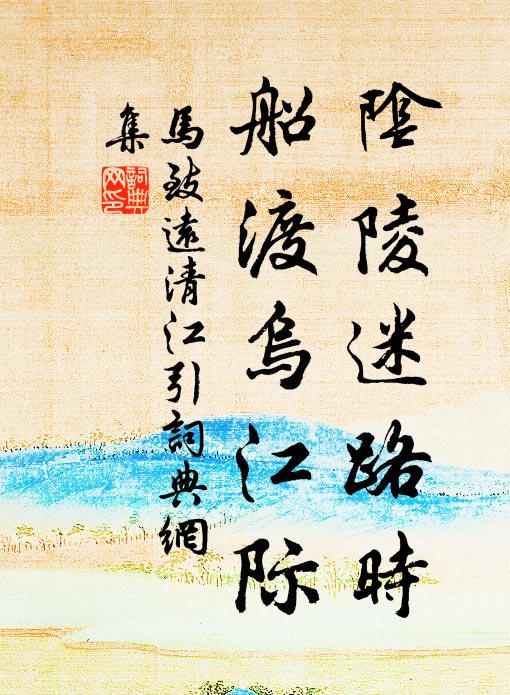 陰陵迷路時
船渡烏江际
馬致遠清江引詞典網
集
詞典
网印